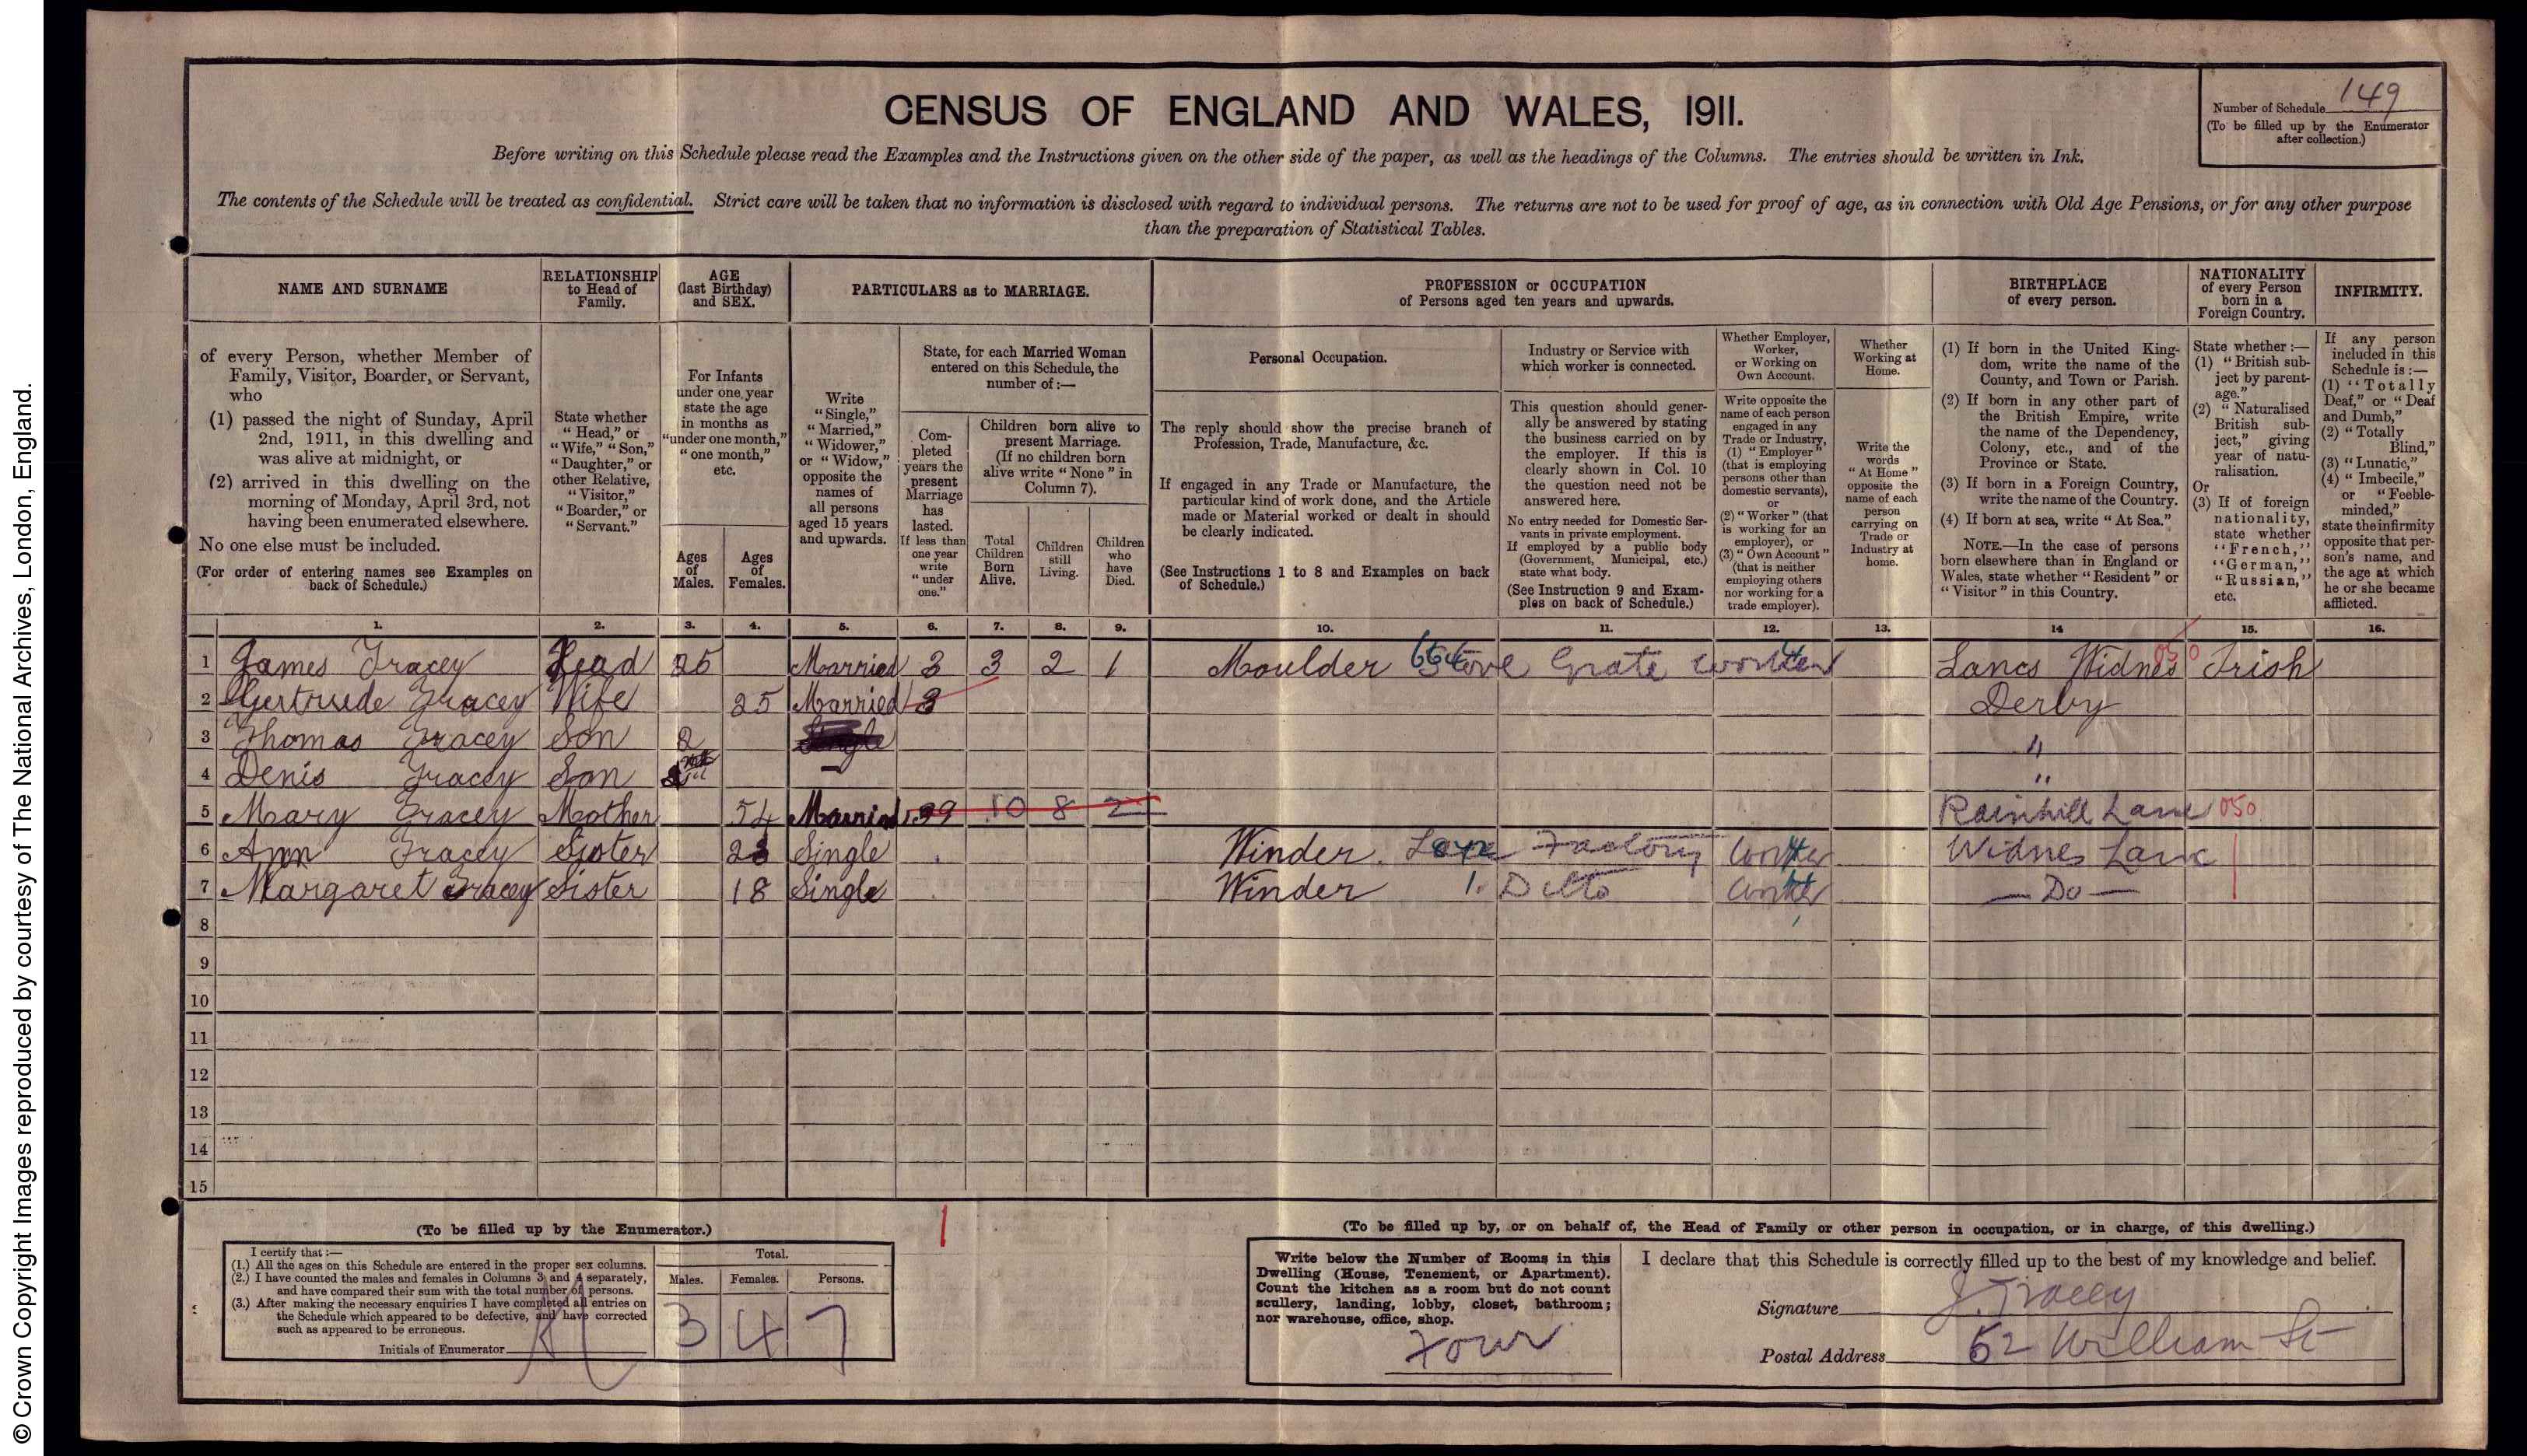 © Crown Copyright Images reproduced by courtesy of The National Archives, London, England.
CENSUS OF ENGLAND AND WALES, 1911.
Number of Schedule 149
(To be filled up by the Enumerator
after collection.)
Before writing on this Schedule please read the Examples and the Instructions given on the other side of the paper, as well as the headings of the Columns. The entries should be written in Ink.
The contents of the Schedule will be treated as confidential. Strict care will be taken that no information is disclosed with regard to individual persons. The returns are not to be used for proof of age, as in connection with Old Age Pensions, or for any other purpose
than the preparation of Statistical Tables.
NAME AND SURNAME
of every Person, whether Member of
Family, Visitor, Boarder, or Servant,
who
(1) passed the night of Sunday, April
2nd, 1911, in this dwelling and
was alive at midnight, or
(2) arrived in this dwelling on the
morning of Monday, April 3rd, not
having been enumerated elsewhere.
No one else must be included.
(For order of entering names see Examples on
back of Schedule.)
RELATIONSHIP
to Head of
Family.
State whether
"Head," or
"Wife," "Son,"
"Daughter," or
other Relative,
"Visitor,"
"Boarder," or
"Servant."
AGE
(last Birthday)
and SEX.
For Infants
under one year
state the age
in months as
"under one month,"
"one month,"
etc.
Ages
of
Males.
Ages
of
Females.
PARTICULARS as to MARRIAGE.
Write
"Single,"
"Married,"
"Widower,"
or "Widow,"
opposite the
names of
all persons
aged 15 years
and upwards.
State, for each Married Woman
entered on this Schedule, the
number of:—
Com-
pleted
years the
present
Marriage
has
lasted.
If less than
one year
write
"under
one."
Children born alive to
present Marriage.
(If no children born
alive write "None" in
Column 7).
Total
Children
Born
Alive.
Children
still
Living.
Children
who
have
Died.
PROFESSION or OCCUPATION
of Persons aged ten years and upwards.
Personal Occupation.
The reply should show the precise branch of
Profession, Trade, Manufacture, &c.
If engaged in any Trade or Manufacture, the
particular kind of work done, and the Article
made or Material worked or dealt in should
be clearly indicated.
(See Instructions 1 to 8 and Examples on back
of Schedule.)
Industry or Service with
which worker is connected.
This question should gener-
ally be answered by stating
the business carried on by
the employer. If this is
clearly shown in Col. 10
the question need not be
answered here.
No entry needed for Domestic Ser-
vants in private employment.
If employed by a public body
(Government, Municipal, etc.)
state what body.
(See Instruction 9 and Exam-
ples on back of Schedule.)
Whether Employer,
Worker,
or Working on
Own Account.
Write opposite the
name of each person
engaged in any
Trade or Industry,
(1) "Employer"
(that is employing
persons other than
domestic servants),
or
(2) "Worker" (that
is working for an
employer), or
(3) "Own Account"
(that is neither
employing others
nor working for a
trade employer).
Whether
Working at
Home.
Write the
words
"At Home"
opposite the
name of each
person
carrying on
Trade or
Industry at
home.
BIRTHPLACE
of every person.
(1) If born in the United King-
dom, write the name of the
County, and Town or Parish.
(2) If born in any other part of
the British Empire, write
the name of the Dependency,
Colony, etc., and of the
Province or State.
(3) If born in a Foreign Country,
write the name of the Country.
(4) If born at sea, write "At Sea."
NOTE.—In the case of persons
born elsewhere than in England or
Wales, state whether "Resident" or
"Visitor" in this Country.
NATIONALITY
of every Person
born in a
Foreign Country.
State whether:—
(1) "British sub-
ject by parent-
age."
(2) "Naturalised
British sub-
ject," giving
year of natu-
ralisation.
Or
(3) If of foreign
nationality,
state whether
"French,"
"German,"
"Russian,"
etc.
INFIRMITY.
If any person
included in this
Schedule is:—
(1) "Totally
Deaf," or "Deaf
and Dumb,"
(2) "Totally
Blind,"
(3) "Lunatic,"
(4) "Imbecile,"
or "Feeble-
minded,"
state the infirmity
opposite that per-
son's name, and
the age at which
he or she became
afflicted.
1. 2. 3. 4. 5. 6. 7. 8. 9. 10. 11. 12. 13. 14 15. 16.
1 James Tracey Head 25 Married 3 3 2 1 Moulder Stove Grate worker Lancs Widnes Irish
2 Gertruede Tracey Wife 25 Married 3 Derby
3 Thomas Tracey Son 2 Single "
4 Denis Tracey Son "
5 Mary Tracey Mother 54 Married 10 8 2 Rainhill Lanc 050
6 Ann Tracey Sister Single Winder Factory Worker Widnes Lanc
7 Margaret Tracey Sister 18 Single Winder Ditto Worker — Do —
8
9
10
11
12
13
14
15
(To be filled up by the Enumerator.)
I certify that:—
(1.) All the ages on this Schedule are entered in the proper sex columns.
(2.) I have counted the males and females in Columns 3 and 4 separately,
and have compared their sum with the total number of persons.
(3.) After making the necessary enquiries I have completed all entries on
the Schedule which appeared to be defective, and have corrected
such as appeared to be erroneous.
Initials of Enumerator
Total.
Males. Females. Persons.
3 4 7
(To be filled up by, or on behalf of, the Head of Family or other person in occupation, or in charge, of this dwelling.)
Write below the Number of Rooms in this
Dwelling (House, Tenement, or Apartment).
Count the kitchen as a room but do not count
scullery, landing, lobby, closet, bathroom;
nor warehouse, office, shop.
Four
I declare that this Schedule is correctly filled up to the best of my knowledge and belief.
Signature J. Tracey
Postal Address 52 William St